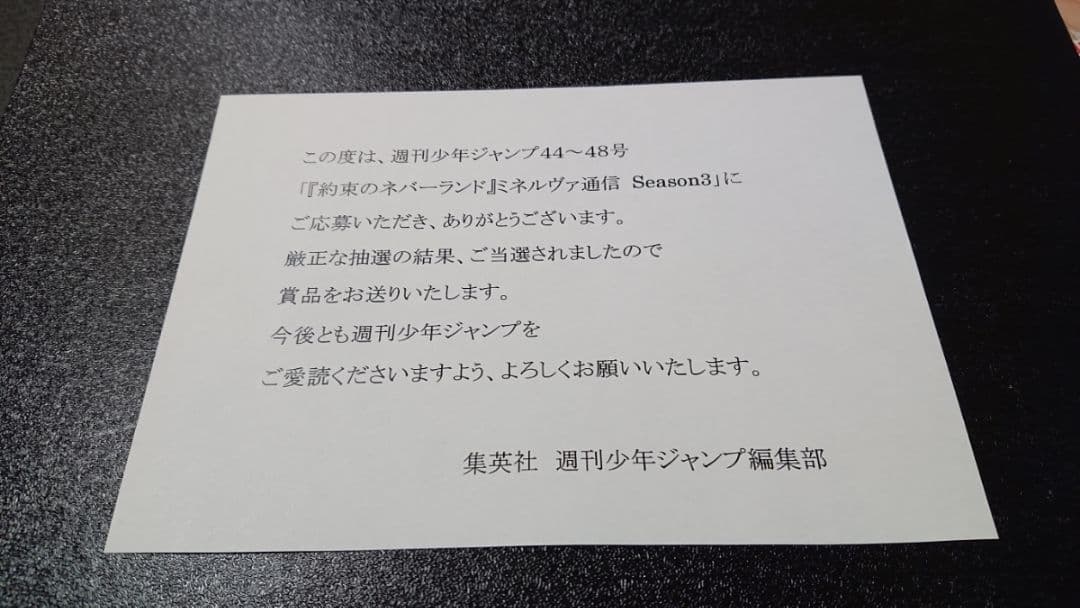 この度は、週刊少年ジャンプ44～48号
「『約束のネバーランド』ミネルヴァ通信 Season3」に
ご応募いただき、ありがとうございます。
厳正な抽選の結果、ご当選されましたので
賞品をお送りいたします。
今後とも週刊少年ジャンプを
ご愛読くださいますよう、よろしくお願いいたします。
集英社　週刊少年ジャンプ編集部